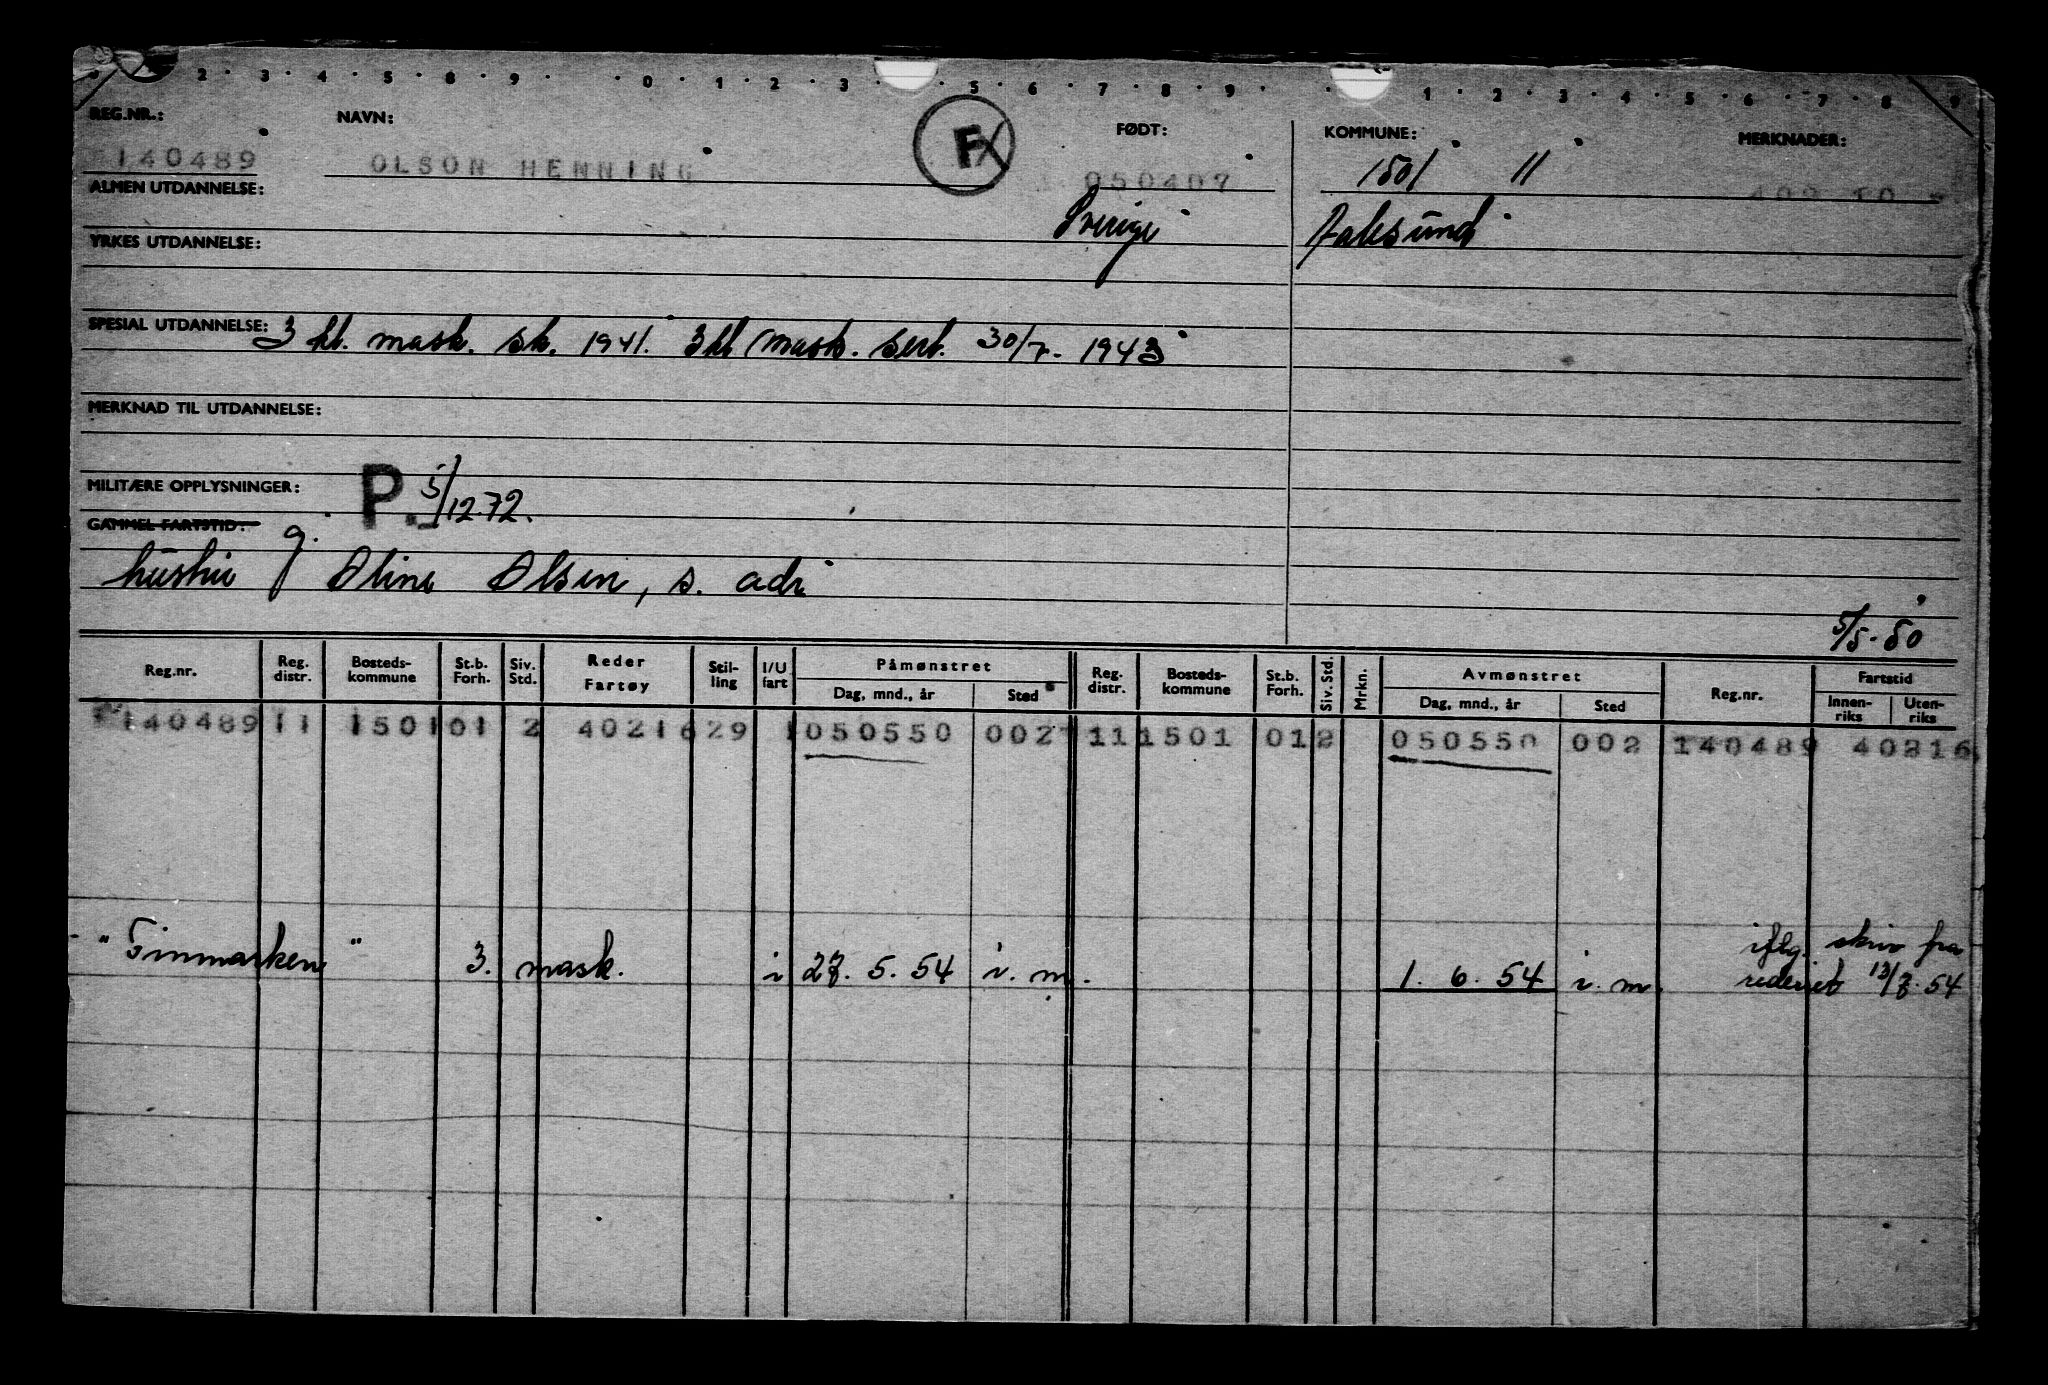 2 · 3 · 4 · 5 · 8 · 9 · · 0 · 1 · 2 · 3 · 5 · 6 · 7 · 8 · 9 · · 1 · 2 · 3 · 4 · 5 · 6 · 7 · 8 · 9
REG.NR.: NAVN: FX FØDT: KOMMUNE: MERKNADER:
140489 OLSON HENNING 050407 1501 11
ALMEN UTDANNELSE: Sverige
YRKES UTDANNELSE:
SPESIAL UTDANNELSE: 3 kl. mask. sk. 1941. 3 kl mask. sert. 30/7. 1943
MERKNAD TIL UTDANNELSE:
MILITÆRE OPPLYSNINGER: P. 5/12.72.
GAMMEL FARTSTID:
hustru g. Oline Olsen, s. adr
5/5.50
Reg.nr. Reg. distr. Bosteds-kommune St.b. Forh. Siv. Std. Reder Fartøy Stil-ling I/U fart Påmønstret Dag, mnd., år Sted Reg. distr. Bosteds-kommune St.b. Forh. Siv. Std. Mrkn. Avmønstret Dag, mnd., år Sted Reg.nr. Fartstid Innen-riks Uten-riks
140489 11 1501 01 2 40216 29 1 050550 002 11 1501 01 2 050550 002 140489 40216
"Finmarken" 3. mask. i 27. 5. 54 i. m. 1. 6. 54 i. m. iflg. skriv fra
rederiet 13/7.54